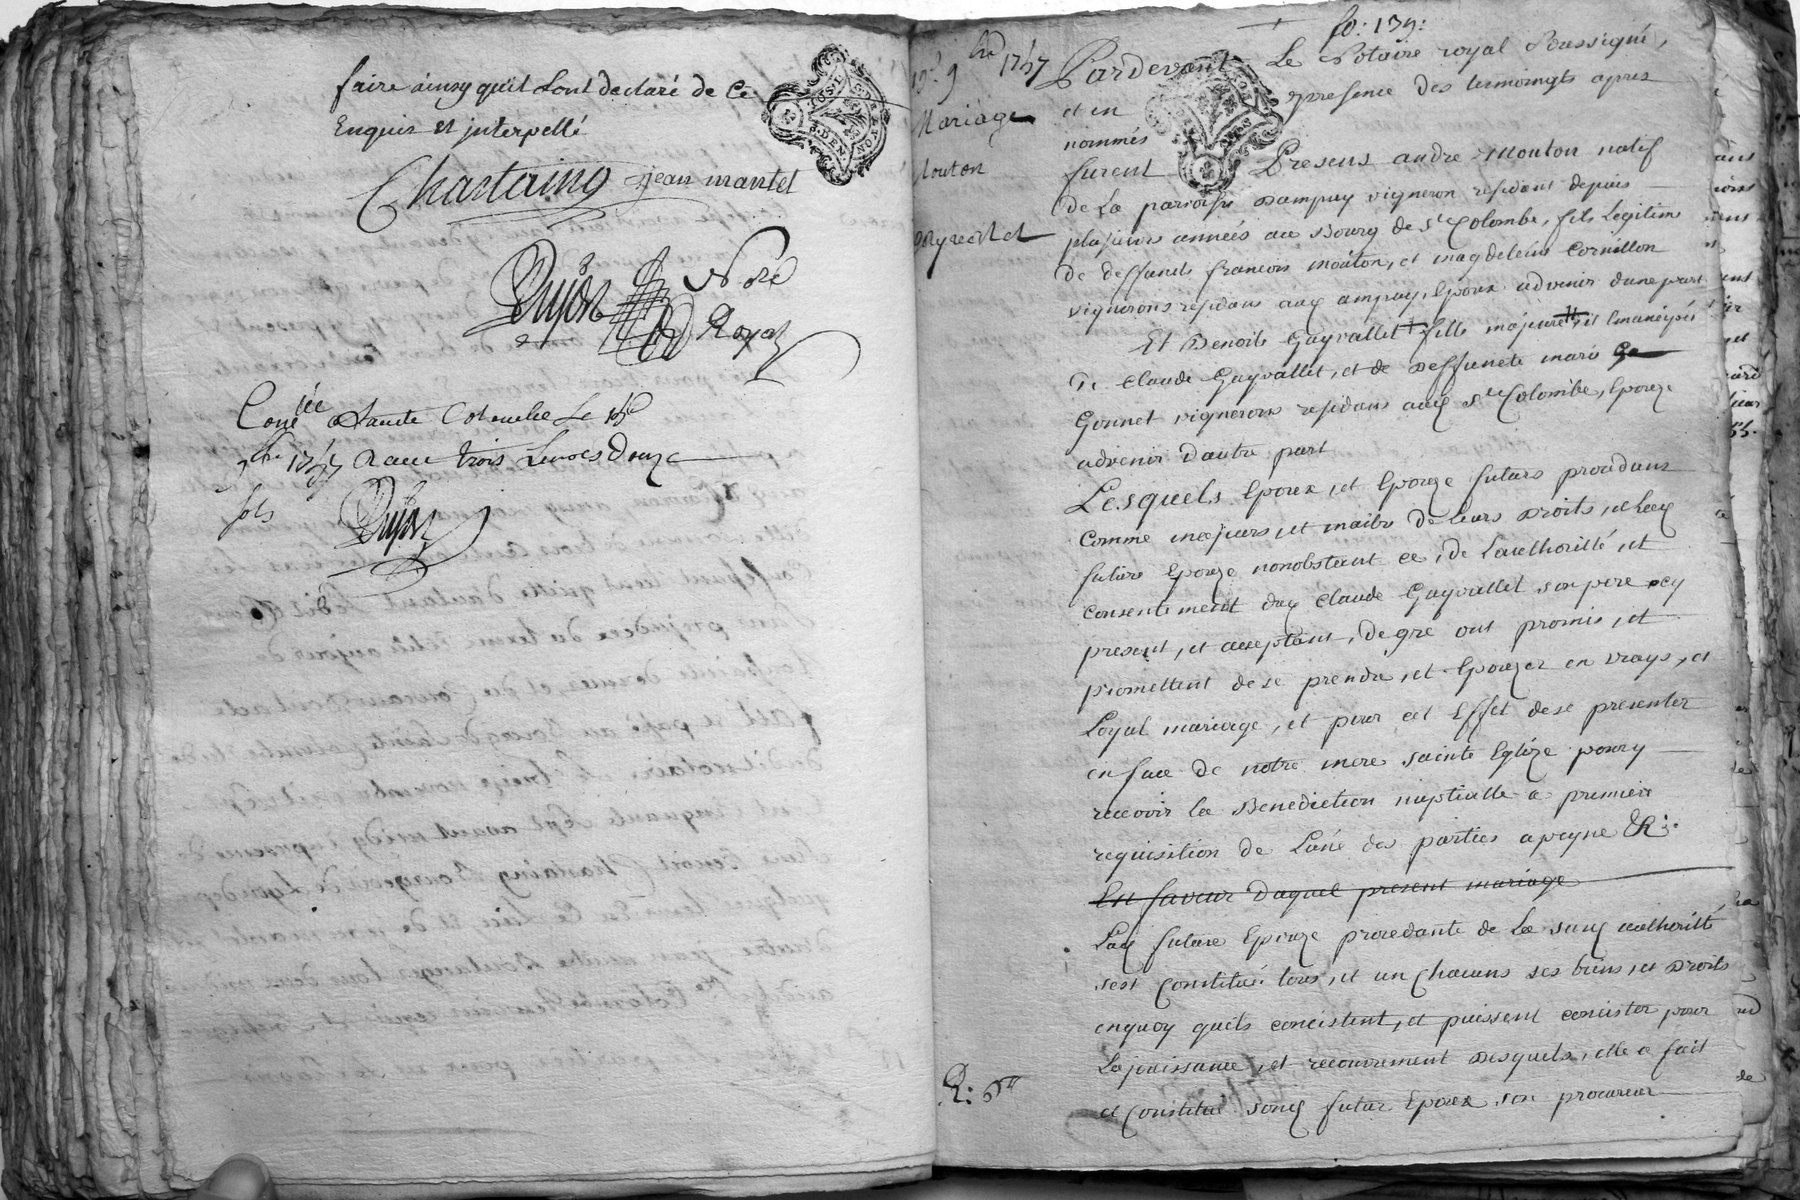 faire ainsy quil dont declaré de ce
Enquis et interpellé
Chastaing jean mantel
Dujon Nore
Royal
Conlé a Sainte Colombe le
9bre 1757 Raceu trois Livres Douze
sols Dujon
fo: 139:
9bre 1757
Mariage
Mouton
Gayvallet
Pardevant Le Notaire royal soussigné,
et en presence des temoingts apres
nommés
furent Presens andre Mouton natif
de La paroisse Dampuy vigneron residant depuis
plusieurs années au Bourg de Ste Colombe, fils Legitime
de deffunts francois mouton, et magdeleine Cornillon
vignerons residans aud ampuy, Epoux advenir dune part
Et Benoite Gayvallet fille majeure, et Emancipée
De Claude Gayvallet, et de Deffuncte marie
Gonnet vignerons residans aud Ste Colombe, Epouze
advenir Dautre part
Lesquels Epoux, et Epouze futurs procedans
Comme majeurs, et maitre de leurs Droits, et Lad
future Epouze nonobstant ce, de Lauthorité, et
consentement dud Claude Gayvallet son pere icy
present, et acceptant, de gré ont promis, et
promettent de se prendre, et Epouzer en vrays, et
Loyal mariage, et pour cet Effet de se presenter
en face de notre mere sainte Eglize pour y
recevoir la Benediction nuptialle a premiere
requisition de Lune des parties a peyne &c:
En faveur Duquel present mariage
Lad future Epouze procedante de La susd authorité
sest Constitué tous, et un chacuns ses biens, et Droits
enquoy quils concistent, et puissent concister pour
La jouissance, et recouvrement desquels, elle a fait
et constitué sond futur Epoux son procureur
R: 6